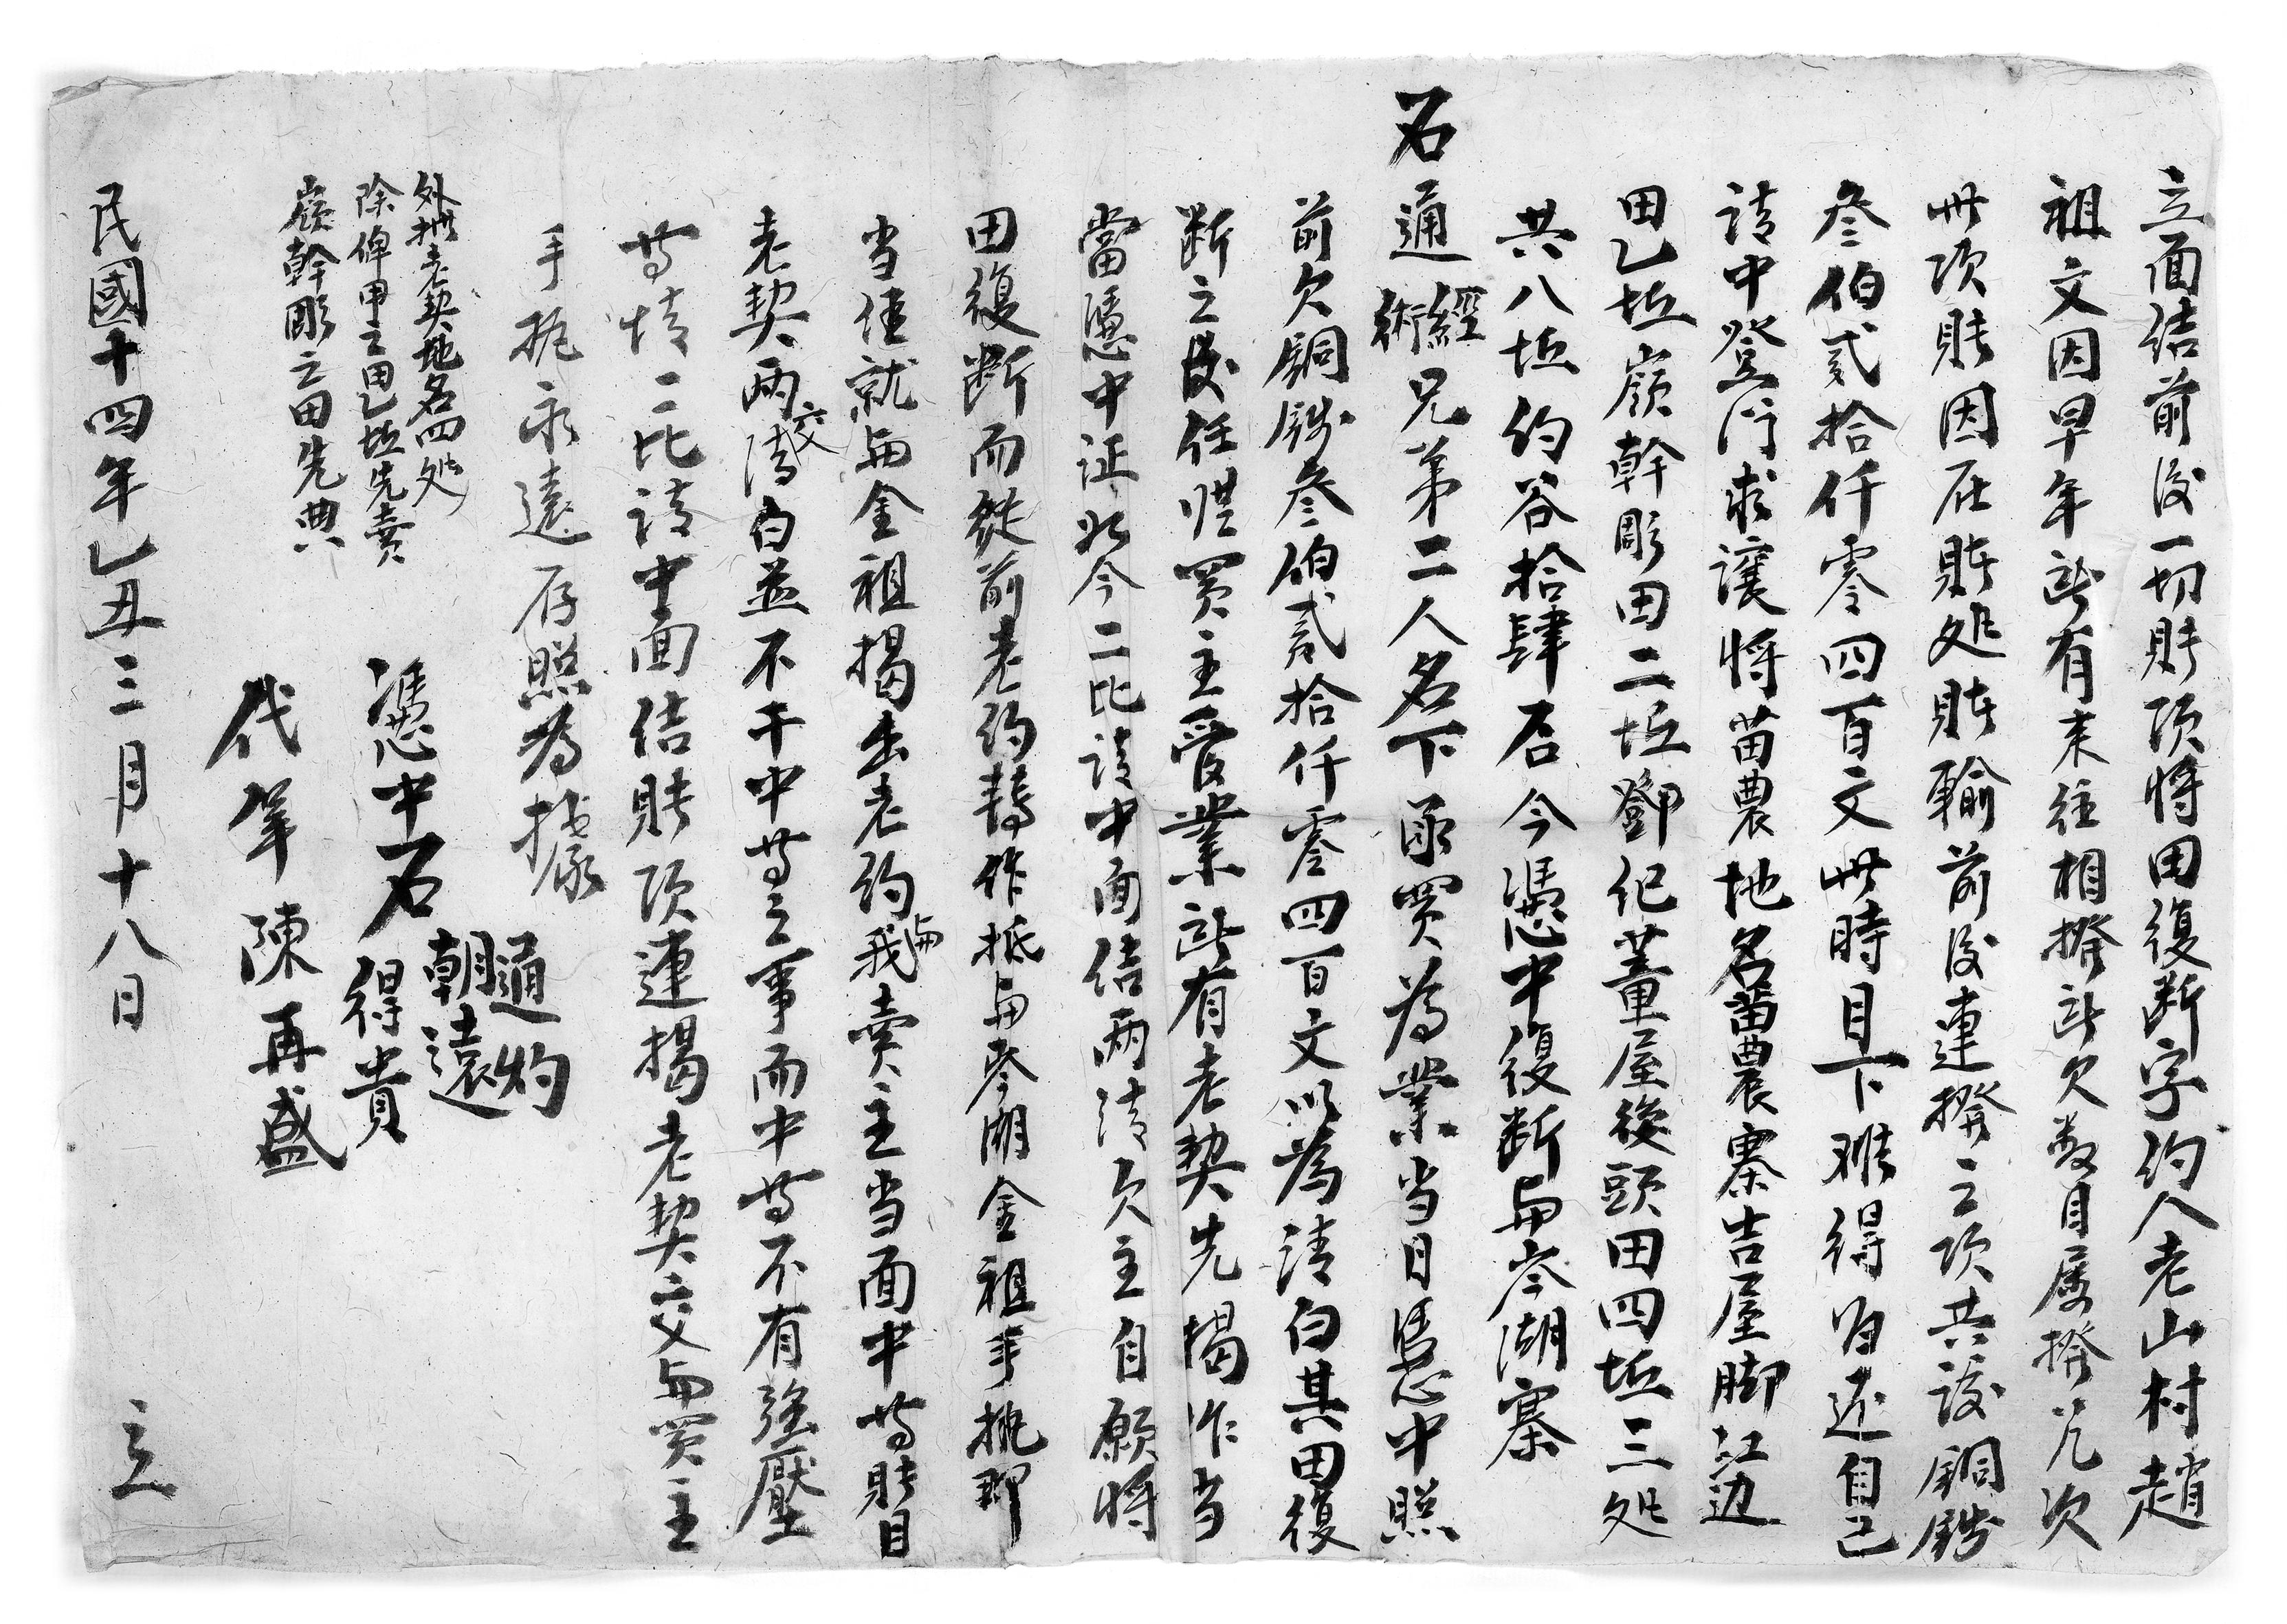 立面结前後一切賬項將田復断字約人老山村趙
祖文因早年㪽有来往相撥㪽欠数目屡撥几次
丗項賬因在賬処賬輸前後連撥之項共該銅錢
叁伯贰拾仟零四百文丗時目下难得为还自己
請中登门求讓将苗農地名苗農寨吉屋脚江边
田乙坵嶺幹彫田二坵鄧纪董屋後頭田四坵三処
共八坵约谷拾肆石今憑中復断与岑湖寨
石通經術兄弟二人名下承買為業当日憑中照
前欠銅錢叁伯贰拾仟零四百文以為清白其田復
断之後任憑買主管業㪽有老契先揭作当
當憑中证次今二比請中面结两清欠主自願将
田復断而從前老约轉作抵与岑湖金祖手执即
当債就与金祖揭出老约与我賣主当面中等賬目
老契两交清白並不干中中等之事而中等不有強壓
等情二比請中面结賬項連揭老契交与買主
手执永遠存照為據
外批老契地名四処
除俾甲之田乙坵先賣
嶺幹彫之田先典
憑中石通灼
朝遠
得貴
代筆陳再盛
民國十四年乙丑三月十八日 立